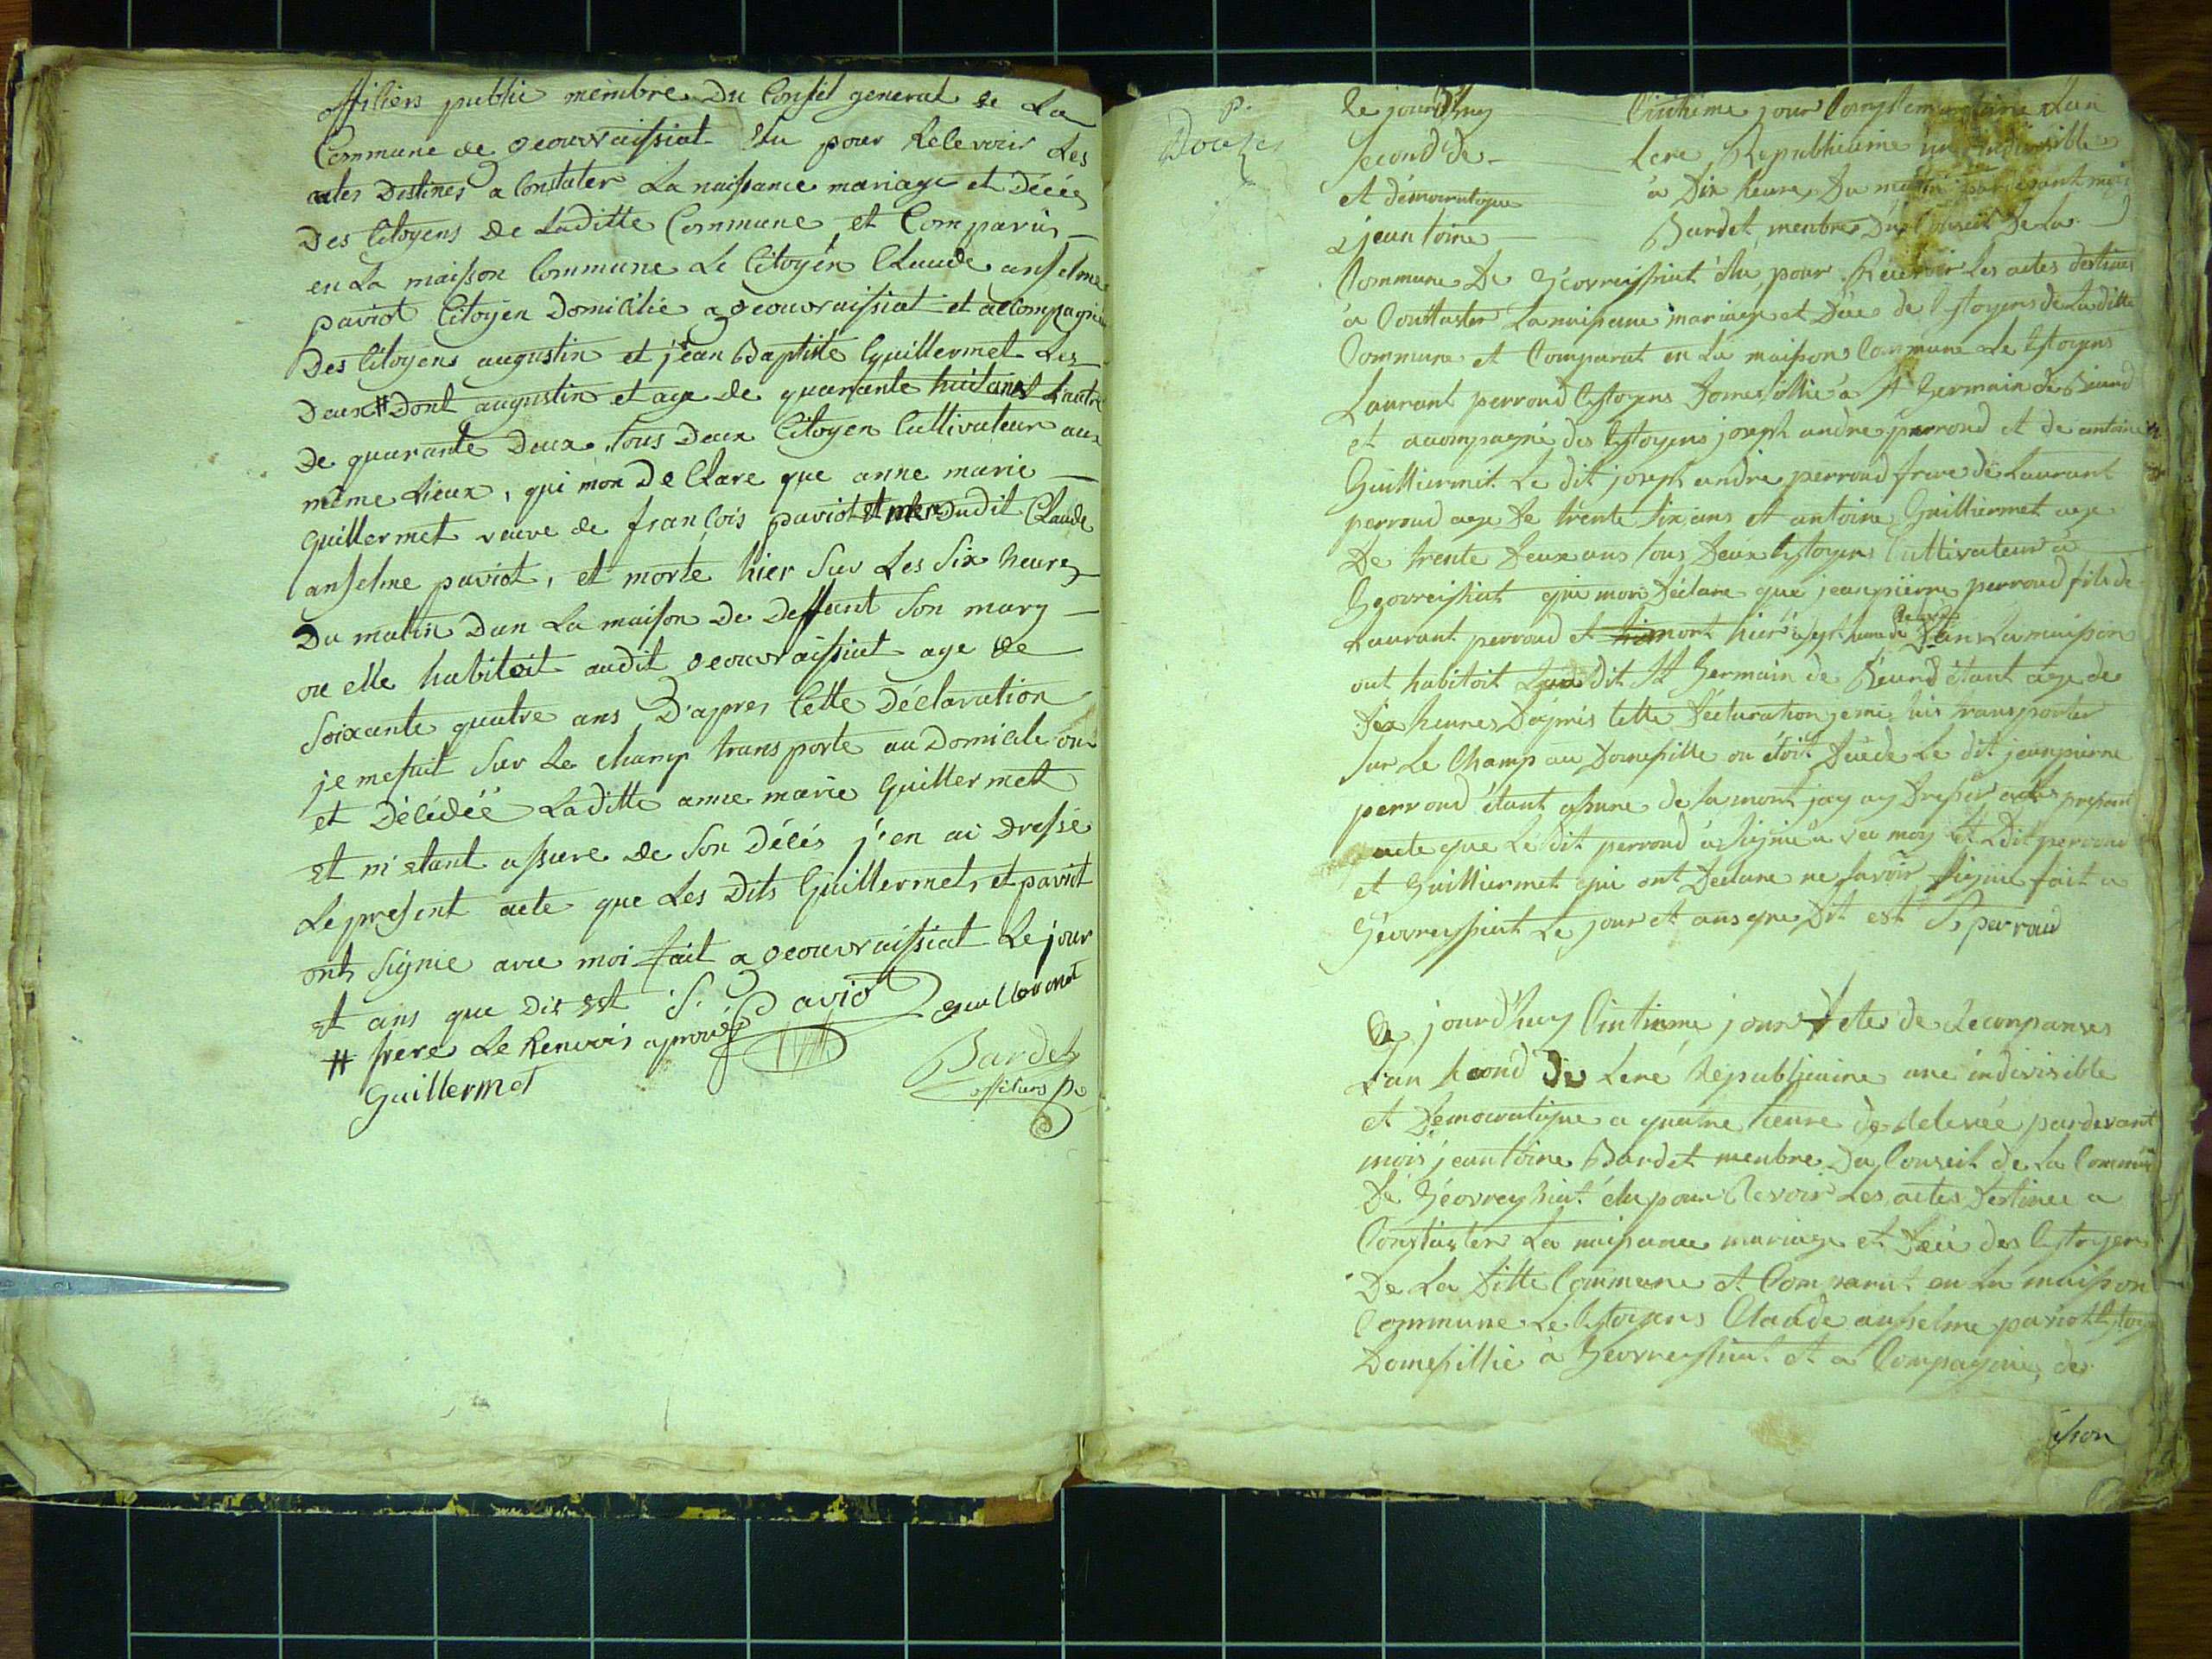 offisiers public membre Du Conseil general de La
Commune de Geouvraissiat Elu pour Relevoir Les
actes Destines a Constater La naissance mariage et Décés
Des Citoyens de Laditte Commune et Comparus
en La maison Commune Le Citoyen Claude anselme
paviot Citoyen Domicilié a geouvraissiat et accompagnié
Des Citoyens augustin et jean Baptiste Guillermet Les
Deux # Dont augustin et age de quarante huit ans et L'autre
De quarante Deux tous Deux Citoyen Cultivateur aux
même Lieux, qui mon De Clare que anne marie
Guillermet veuve de françois paviot et mere Dudit Claude
anselme paviot, et morte hier Sur Les Six heures
Du matin Dan La maison De Deffunt Son mary
ou elle habitoit audit geouvraissiat age de
Soixante quatre ans D'apres Cette Déclaration
je mesuit Sur Le champ transporte au Domicile ou
et Décédéé Laditte anne marie Guillermet
et m'etant assure de Son Décés j'en ai Dressé
Le present acte que Les Dits Guillermet, et paviot
ont Signie avec moi fait a geouvraissiat Le jour
et ans que Dit est S. Paviot Guillermet
# frere Le Renvois aprouvé
Guillermet
Bardet
offisiers p.
p.
Douze
Ce jourdhuy Cinthieme jour Complemantaire Lan
second de Lere Republicaine un indivisible
et démocratique à Dix heures Du matin pardevant mois
jeantoine Bardet menbres Du Conseil De La
Commune De Géovreissiat élu pour Récevoir Les actes destines
à Conttaster La naissance mariage et Déce de Cystoyens de La ditte
Commune et Comparut en La maisson Commune Le Cystoyens
Laurant perroud Cystoyens Domesillié à St Germain de Béard
et acompagné des Cystoyens joseph andre perroud et de antoine
Guilliermet Le dit joseph andre perroud frere de Laurant
perroud age De trente six ans et antoine Guilliermet age
De trente Deux ans tous Deux Cystoyens Cultivateur à
Geovreissiat qui mon Déclare que jeanpierre perroud fils de
Laurant perroud et mort hier a sept heure de Relevé Dans La maisson
out habitoit audit St Germain de Béard étant age de
Dix heures Dapres Cette Déclaration je me suis transporter
sur Le Champ au Domesille ou étoit Décede Le dit jeanpierre
perroud étant assure de sa mort jay ay Dresser Le present
acte que Le dit perroud à Signié avec moy Et Dit perroud
et Guilliermet qui ont Declare ne savoir Signie fait a
Géovreissiat Le jour et ans que Dit est S. perroud
Ce jourd'huy Cintieme jour fete de Recompanses
L'an second De Lere Republicaine une indivisible
et Démocratique a quatre heure de Relevée pardevant
mois jeantoine Bardet menbre Du Conseil de La Commune
De Géovreyssiat élu pour Revoir Les actes Destinee a
Constaster La naissance mariage et Déce des Cystoyens
De La Ditte Commune et Comparut en La maisson
Commune Le Cystoyens Claude anselme paviot Cystoyen
Domesillié à Geovreyssiat et a Compagnie de